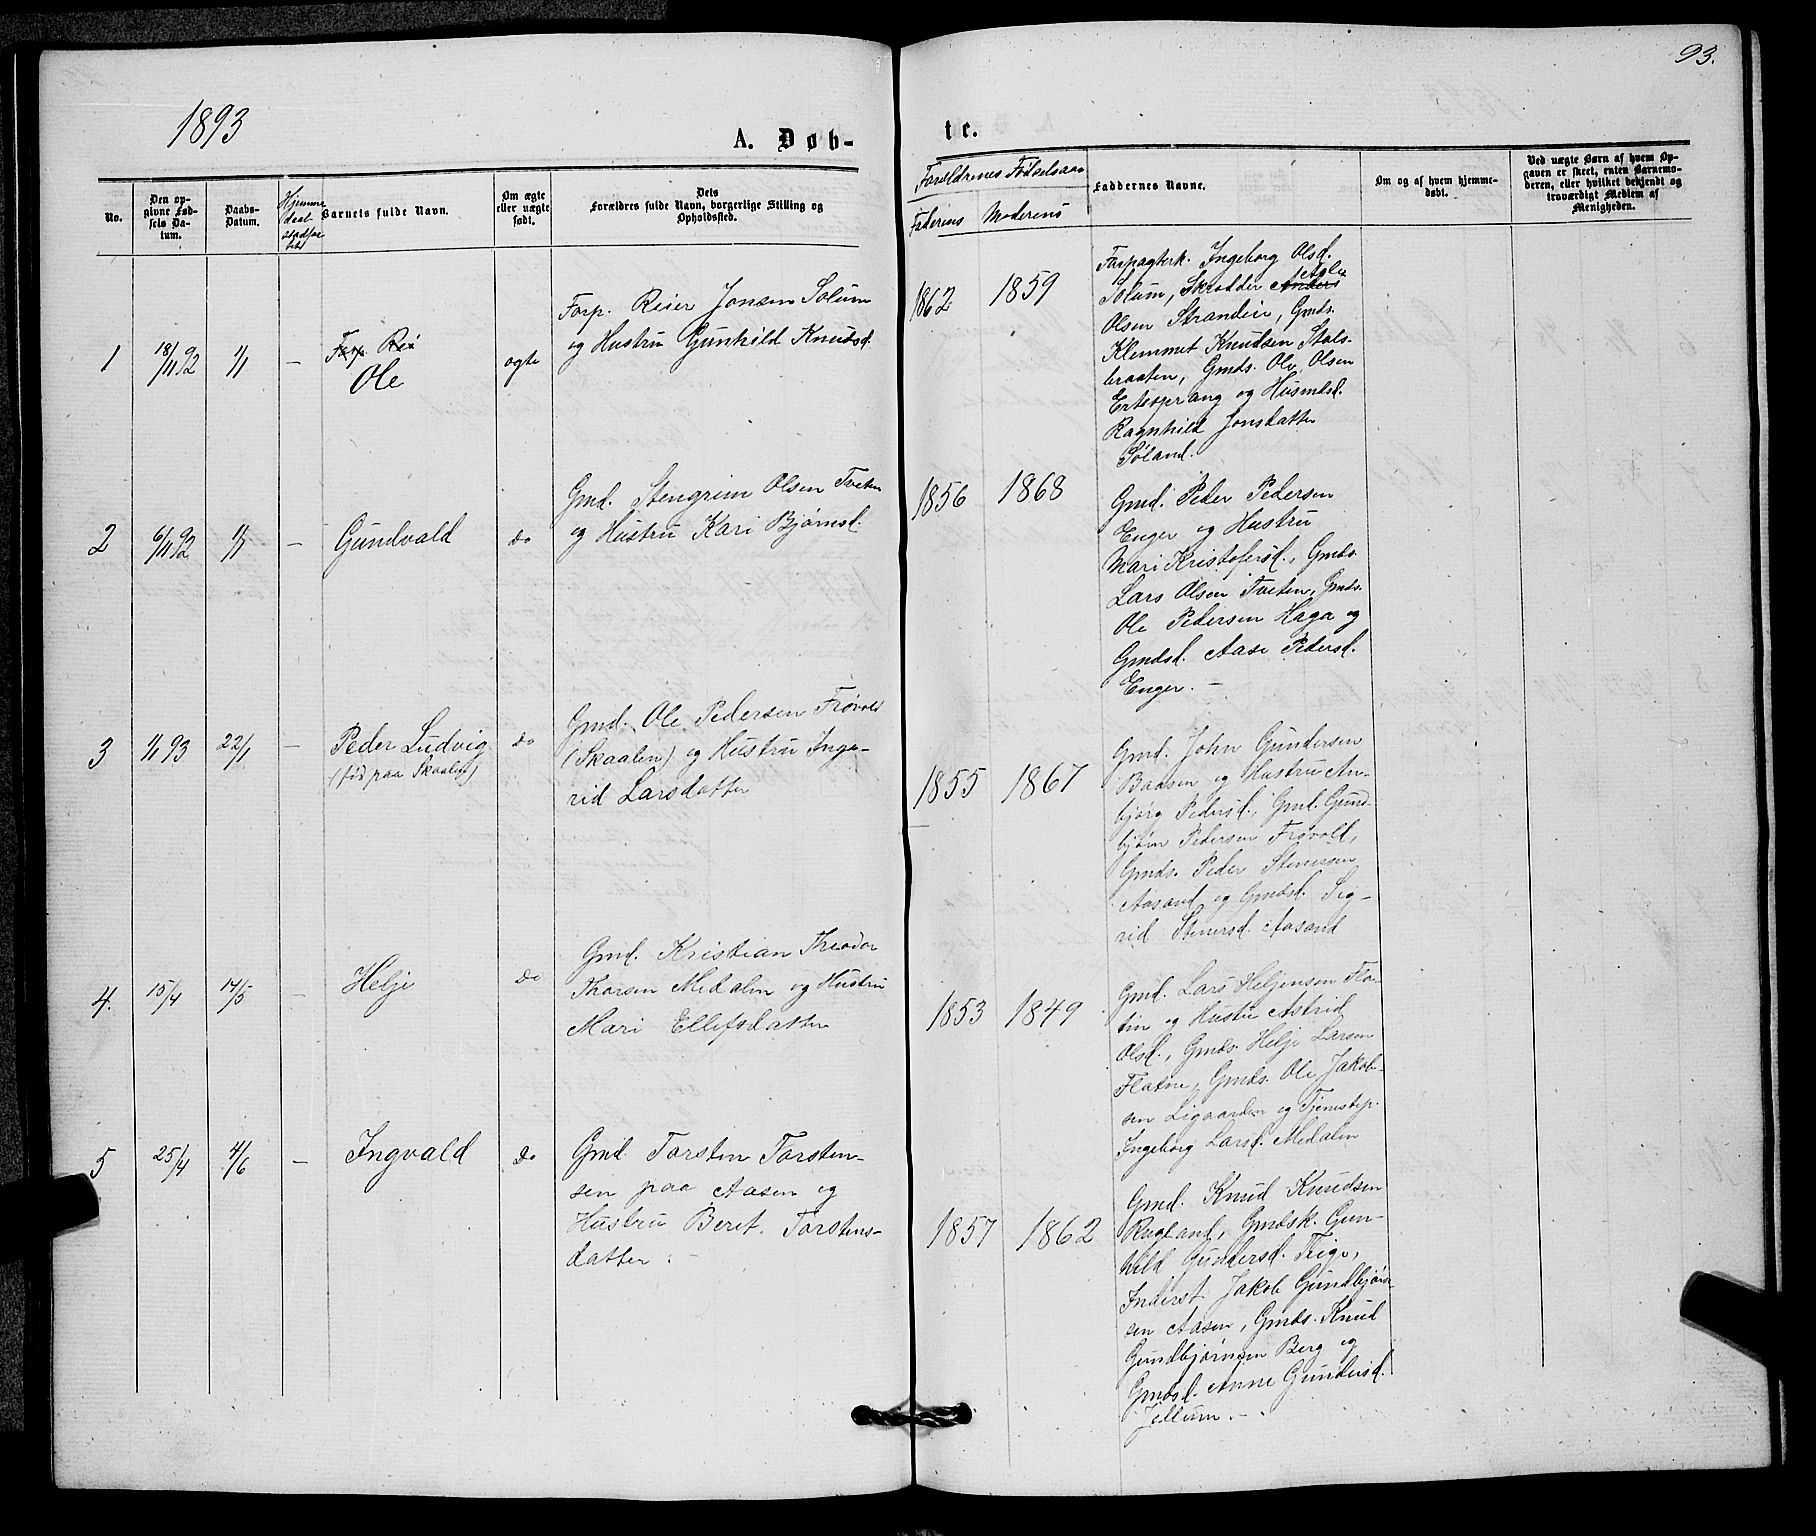 93.
1893
A. Døb-
te.
No.
Den op-
givne Fød-
sels Da-
tum.
Daabs-
Datum.
Hjemme
daab
stadfæ
Barnets fulde Navn.
Om ægte
eller uægte
født.
Dets
Forældres fulde Navn, borgerlige Stilling og
Opholdssted.
Forældrenes Fødselsaar
Faderens Moderens
Faddernes Navne.
Om og af hvem hjemme-
døbt.
Ved uægte Børn af hvem Op-
gaven er skeet, enten Barnemo-
deren, eller hvilket bekjendt og
troværdigt Medlem af
Menigheden.
1
18/11 92
1/1
—
Forp. Rei
Ole
ægte
Forp. Reier Jonsen Solum
og Hustru Gunhild Knudsd.
1862
1859
Forpagterk. Ingeborg Olsd.
Solum, Skrædder Anders
Olsen Strandein, Gmds.
Klemmet Knudsen Stols-
braaten, Gmds. Ole Olsen
Ertesprang og Husmdsd.
Ragnhild Jonsdatter
Søland.
2
6/11 92
1/1
—
Gundvald
do
Gmd. Stengrim Olsen Tveten
og Hustru Kari Bjørnsd.
1856
1868
Gmd. Peder Pedersen
Enger og Hustru
Mari Kristofersd., Gmds.
Lars Olsen Tveten, Gmds.
Ole Pedersen Haga og
Gmdsd. Aase Pedersd.
Enger. —
3
1/1 93
22/1
—
Peder Ludvig
(fød paa Skaalen)
do
Gmd. Ole Pedersen Frøvold
(Skaalen) og Hustru Inge-
rid Larsdatter
1855
1867
Gmd. John Gundersen
Baasen og Hustru An-
bjørg Pedersd., Gmd. Gund-
bjørn Pedersen Frøvold,
Gmds. Peder Stenersen
Aasand og Gmdsd. Sig-
rid Stenersd. Aasand
4.
15/4
14/5
—
Helje
do
Gmd. Kristian Theodor
Thorsen Medalen og Hustru
Mari Ellefsdatter
1853
1849
Gmd. Lars Heljensen Fla-
tin og Hustru Astrid
Olsd., Gmds. Helje Larsen
Flatne, Gmds. Ole Jakob-
sen Ligaarden og Tjenestep.
Ingeborg Larsd. Medalen
5
25/4
4/6
—
Ingvald
do
Gmd Torsten Torsten-
sen paa Aasen og
Hustru Beret Torstens-
datter.
1857
1862
Gmd. Knud Knudsen
Rugland, Gmdsk. Gun-
hild Gundersd. Teige,
Inderst Jakob Gundbjørn-
sen Aasen, Gmds. Knud
Gundbjørnsen Berg og
Gmdsd. Anne Gundersd.
Jellum. —